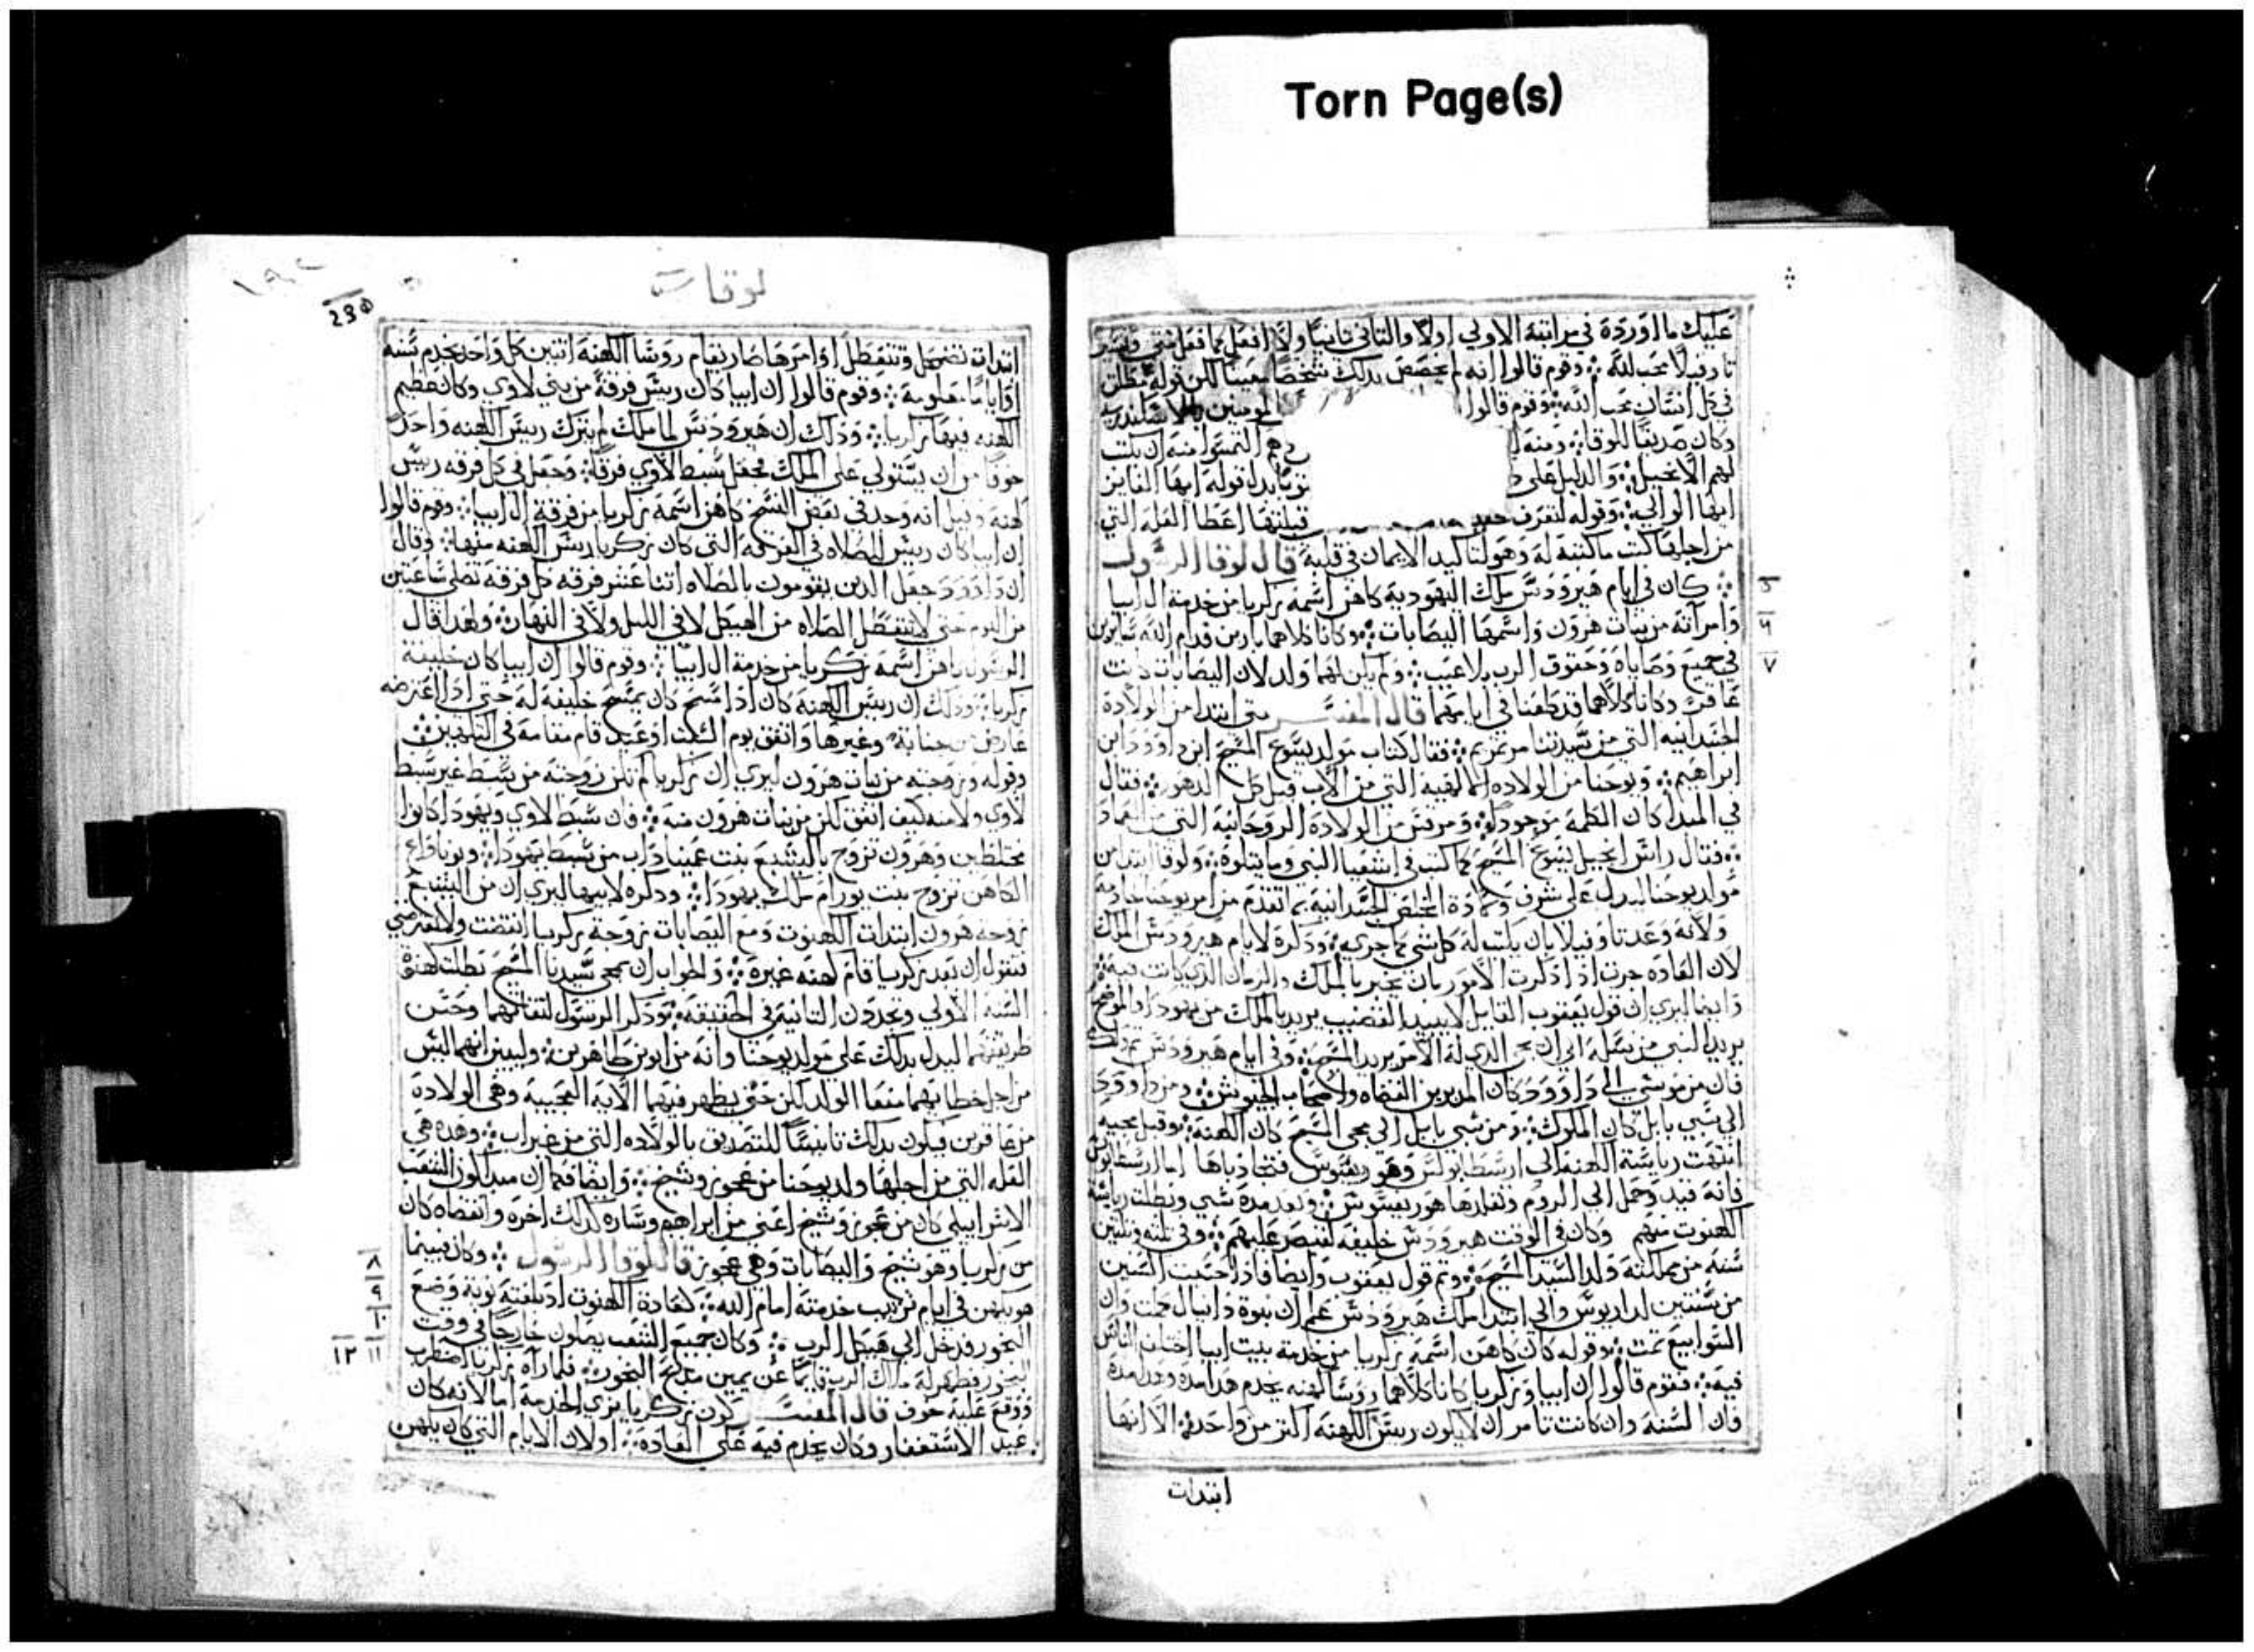 Torn Page(s)
عليك ما اورده في مراتبه الاولي اولا والتاني تانيا ولا افعل كما فعل متي وفسر
تاوفيلا محب الله وقوم قالوا انه لم يخصص بدلك شخصا معينا لكن قوله مطلق
في كل انسان محب الله وقوم قالوا المومنين بالاسكندريه
وكان صديقا للوقا ومنه التمسوا منه ان يكتب
لهم الانجيل والدليل علي قوله ايها الفايز
ايها الوالي وقوله لتعرف قبلتها اعطا العله التي
من اجلها كتب ما كتبه له وهو لتاكيد الايمان في قلبه قال لوقا الرسول
كان في ايام هيرودس ملك اليهوديه كاهن اسمه زكريا من خدمة ال ابيا
وامراته من بنات هرون واسمها اليصابات وكانا كلاهما بارين قدام الله سايرين
في جميع وصاياه وحقوق الرب بلا عيب ولم يكن لهما ولد لان اليصابات كانت
عاقر وكانا كلاهما قد طعنا في ايامهما قال المفسر متي ابتدا من الولادة
الجسدانيه التي من سيدتنا مرتمريم فقال كتاب مولد يسوع المسيح ابن داوود ابن
ابراهيم ويوحنا من الولاده الالهيه التي من الاب قبل كل الدهور فقال
في المبدا كان الكلمه موجودا ومرقس من الولادة الروحانيه التي من العماد
فقال راس انجيل يسوع المسيح كما كتب في اشعيا النبي وما يتلوه ولوقا ابتدا من
مولد يوحنا ليدل علي شرف ولادة المخلص الجسدانيه بما تقدم من امر يوحنا خادمه
ولانه وعد تاوفيلا بان يكتب له كل شي كما جري وذكره لايام هيرودس الملك
لان العاده جرت اذا ذكرت الامور بان يخبر بالملك والزمان الذي كانت فيه
وايضا ليري ان قول يعقوب القايل لا يبيد القضيب يريد بالملك من يهودا والموضح
يريد النبي من نسله الي ان يجي الذي له الامر يريد المسيح وفي ايام هيرودس
فان من موسي الي داوود كان المدبرين القضاه واصحاب الجيوش ومن داوود
الي سبي بابل كان الملوك ومن سبي بابل الي مجي المسيح كان الكهنة وقبل مجيه
انتهت رياسة الكهنه الي ارسطابولس وهو ريقنوس فتجاذباها اما ارسطابولس
فانه قيد وحمل الي الروم وبعد مدة سبي وبطلت رياسة
الكهنوت منهم وكان في الوقت هيرودس خليفه لقيصر عليهم وفي تلته وتلتين
سنه من مملكته ولد السيد المسيح وتم قول يعقوب وايضا فاذا حسبت السنين
من سنتين لداريوس والي ابتدا ملك هيرودس علم ان نبوة دانيال كملت وان
السوابيع تمت وقوله كان كاهن اسمه زكريا من خدمة بيت ابيا اختلف الناس
فيه فقوم قالوا ان ابيا وزكريا كانا كلاهما روسا كهنه يخدم هدا مدة وهدا مدة
فان السنه وان كانت تامر ان لا يكون رييس الكهنه اكتر من واحد الا انها
ابتدات
٥
٦
٧
لوقا
١٩
230
ابتدات تضمحل وتتعطل اوامرها صار يقام روسا الكهنه اتنين كل واحد يخدم سنه
او اياما معلومة وقوم قالوا ان ابيا كان رييس فرقة من بني لاوي وكان عظيم
الكهنه فيها زكريا وذلك ان هيرودس لما ملك لم يترك رييس الكهنه واحد
خوفا من ان يستولي علي الملك فجعل سبط لاوي فرقا وجعل في كل فرقه رييس
كهنه وقيل انه وجد في بعض النسخ كاهن اسمه زكريا من فرقة ال ابيا وقوم قالوا
ان ابيا كان رييس الصلاه في الفرقه التي كان زكريا رييس الكهنه منها وقال
ان داوود جعل الذين يقومون بالصلاه اتنا عشر فرقه كل فرقه تصلي ساعتين
من اليوم حتي لا تتعطل الصلاه من الهيكل لا في الليل ولا في النهار ولهدا قال
الرسول كاهن اسمه زكريا من خدمة ال ابيا وقوم قالوا ان ابيا كان خليفة
زكريا وذلك ان رييس الكهنه كان اذا مسح كان يمسح خليفه له حتي اذا اعترضه
عارض من جنابة وغيرها واتفق يوم السبت او عيد قام مقامه في التكهين
وقوله وزوجته من بنات هرون ليري ان زكريا لم تكن زوجته من سبط غير سبط
لاوي ولا منه كيف اتفق لكن من بنات هرون منه فان سبط لاوي ويهودا كانوا
مختلطين وهرون تزوج باليشبع بنت عميناداب من سبط يهودا ويوياداع
الكاهن تزوج بنت يورام ملك يهودا وذكره لاسمها ليري ان من اليشبع
زوجة هرون ابتدات الكهنوت ومع اليصابات زوجة زكريا انقضت ولا تعترضني
فتقول ان بعد زكريا قام كهنه غيره والجواب ان بمجي سيدنا المسيح بطلت كهنوة
السنه الاولي وتجددت التانيه في الحقيقه وذكر الرسول لتقاهما وحسن
طريقتهما ليدل بدلك علي مولد يوحنا وانه من ابوين طاهرين وليبين انهما ليس
من اجل خطاياهما منعا الولد لكن حتي يظهر فيهما الاية العجيبه وهي الولادة
من عاقرين فيكون بدلك تانيسا للتصديق بالولاده التي من غير اب وهده هي
العله التي من اجلها ولد يوحنا من عجوز وشيخ وايضا فكما ان مبدا كون الشعب
الاسراييلي كان من عجوز وشيخ اعني من ابراهيم وساره كدلك اخره وانقضاه كان
من زكريا وهو شيخ واليصابات وهي عجوز قال لوقا الرسول وكان فيما
هو يكهن في ايام ترتيب خدمته امام الله كعادة الكهنوت اذ بلغته نوبة وضع
البخور فدخل الي هيكل الرب وكان جميع الشعب يصلون خارجا في وقت
البخور فظهر له ملاك الرب قايما عن يمين مذبح البخور فلما راه زكريا اضطرب
ووقع عليه خوف قال المفسر كون زكريا يزي الخدمة اما لانه كان
عيد الاستغفار وكان يخدم فيه علي العادة او لان الايام التي كان يكهن
٨
٩
١٠
١١ ١٢